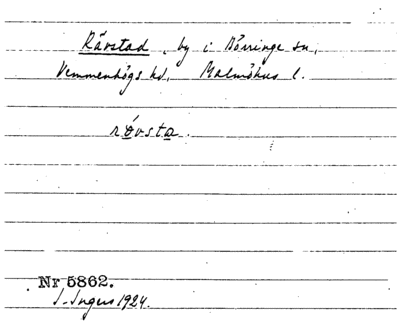 Råvstad, by i Börringe sn,
Vemmenhögs hd, Malmöhus l.
róvsta.
Nr 5862.
J. Ingers 1924.